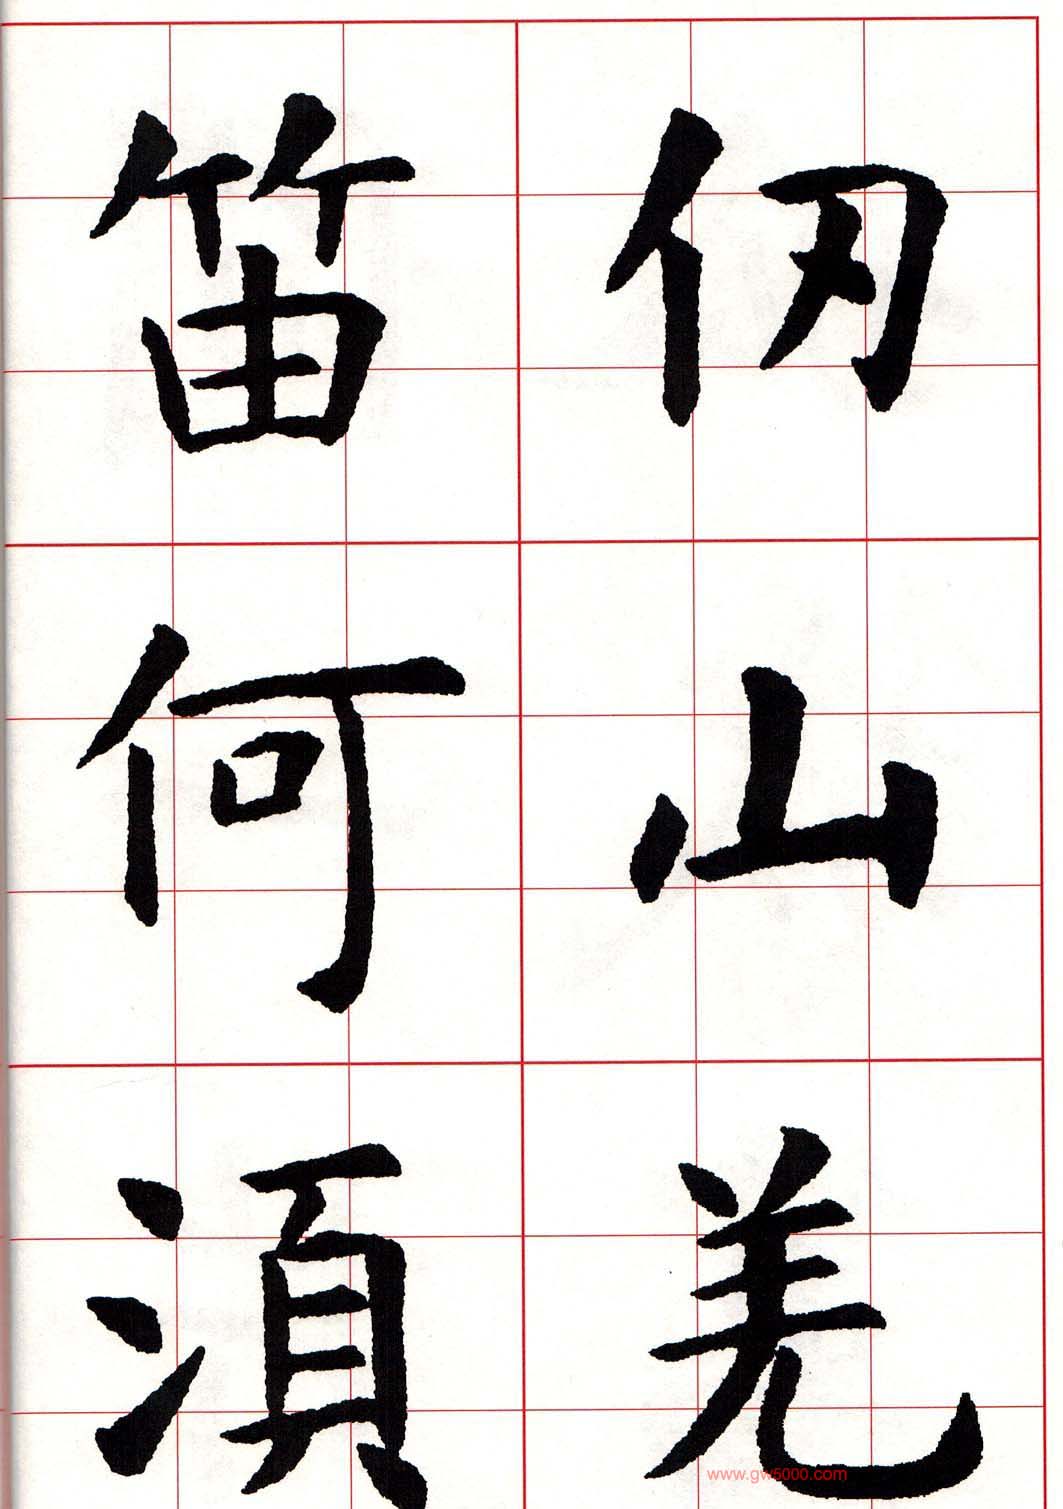 仞山羌
笛何須
www.gw5000.com